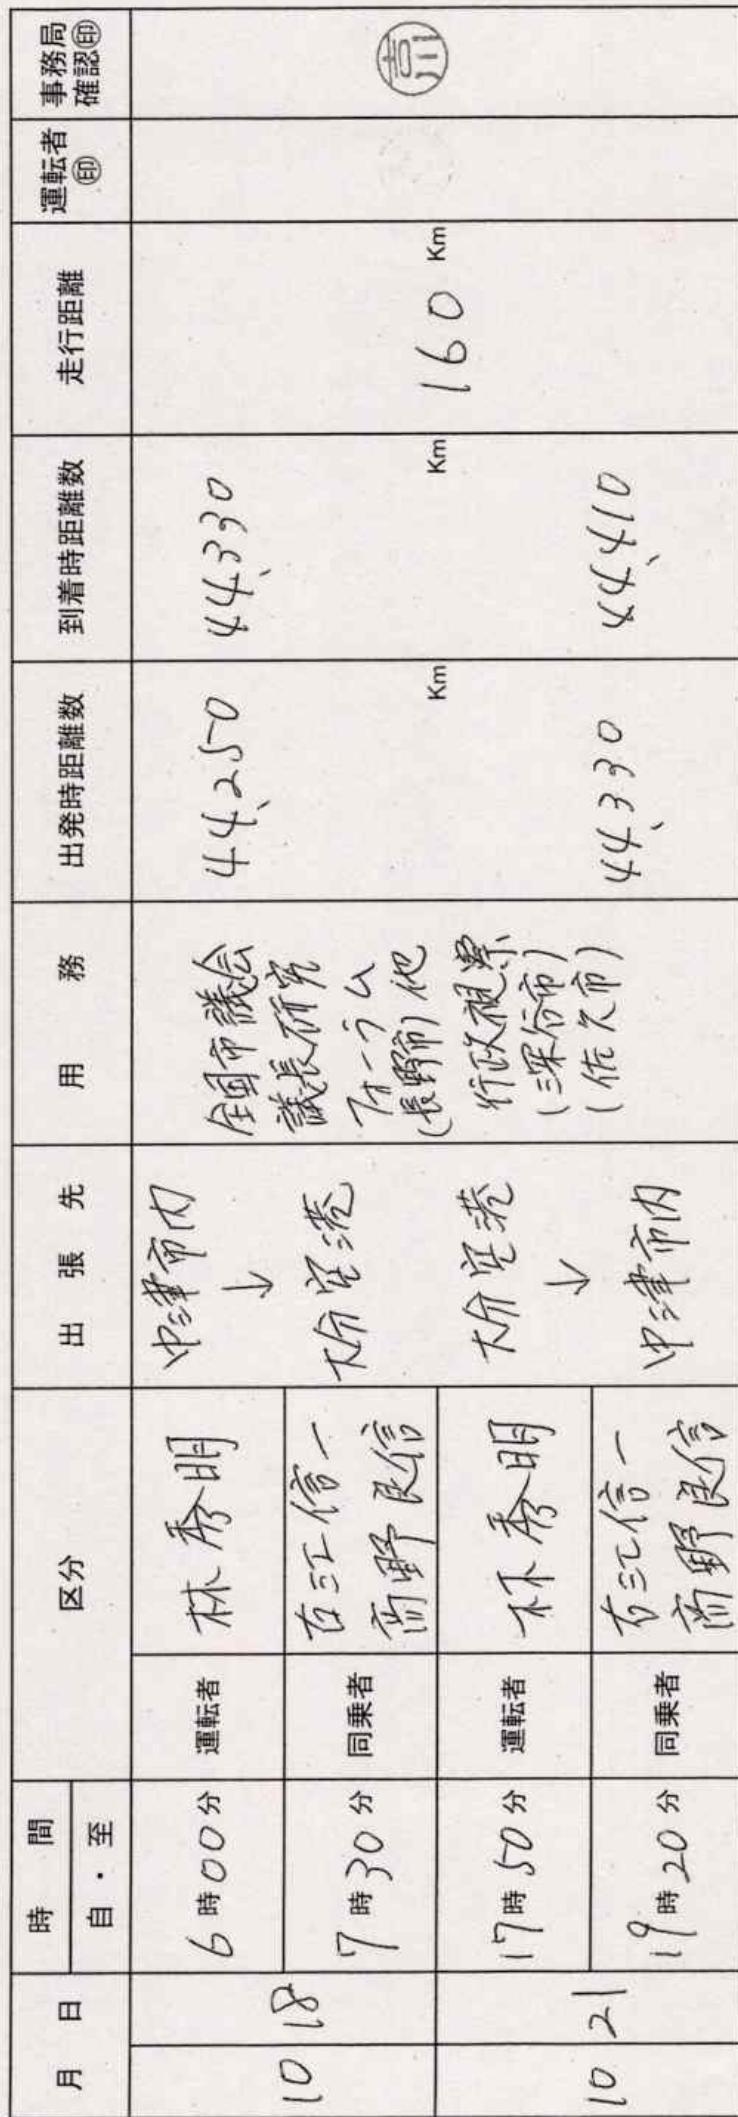 月 日
時 間
自・至
区分
出 張 先
用 務
出発時距離数
到着時距離数
走行距離
運転者
㊞
事務局
確認㊞
10 18
6時00分
運転者
林秀明
中津市内
↓
大分空港
全国市議会
議長研究
フォーラム
(長野市)他
44,250
Km
44,330
Km
160 Km
7時30分
同乗者
古江信一
高野良信
10 21
17時50分
運転者
林秀明
大分空港
↓
中津市内
行政視察
(深谷市)
(佐久市)
44,330
44,410
19時20分
同乗者
古江信一
高野良信